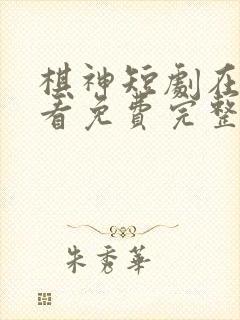 棋神短劇在
看免費完整
朱秀華